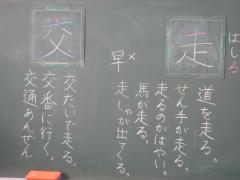 走
はしる
道を走る。
せん手が走る。
走るのがはやい。
馬が走る。
走しゃが出てくる。
早×
交
交たいで走る。
交番に行く。
交通あんぜん